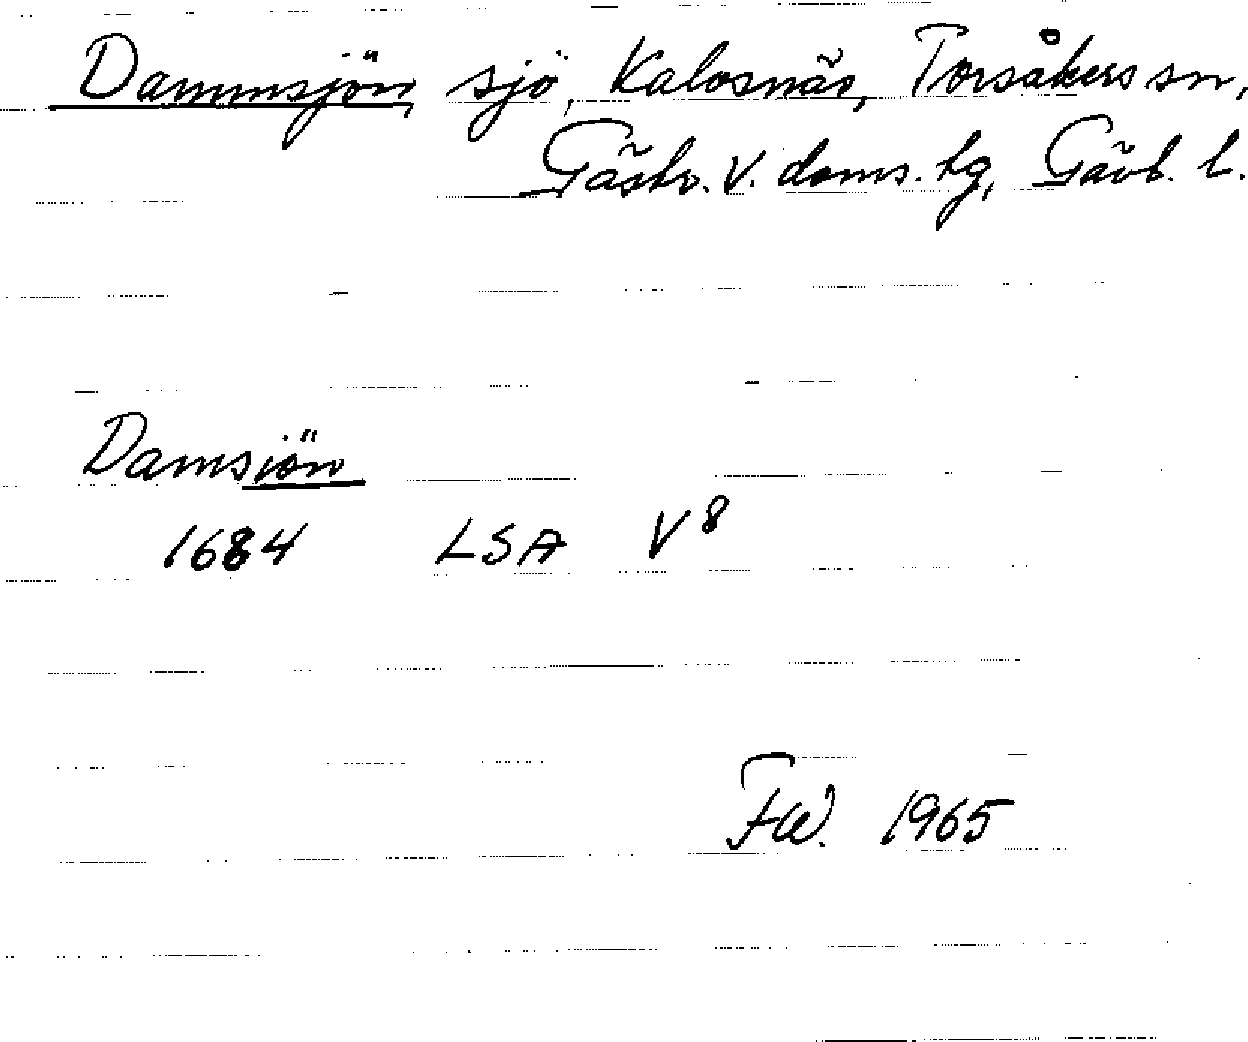 Dammsjön, sjö, Kalvsnäs, Torsåkers sn,
Gästr. V. doms. tg, Gävb. l.
Damsiön
1684 LSA V8
FW. 1965